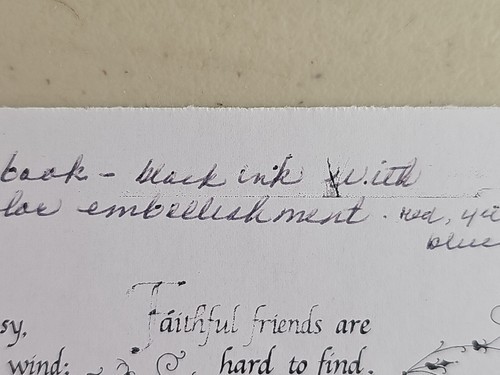 book - black ink with
lor embellishment. red, ye
blue
sy,
Faithful friends are
wind;
hard to find.